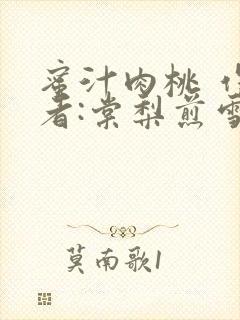 蜜汁肉桃 作
者:棠梨煎雪
莫南歌1